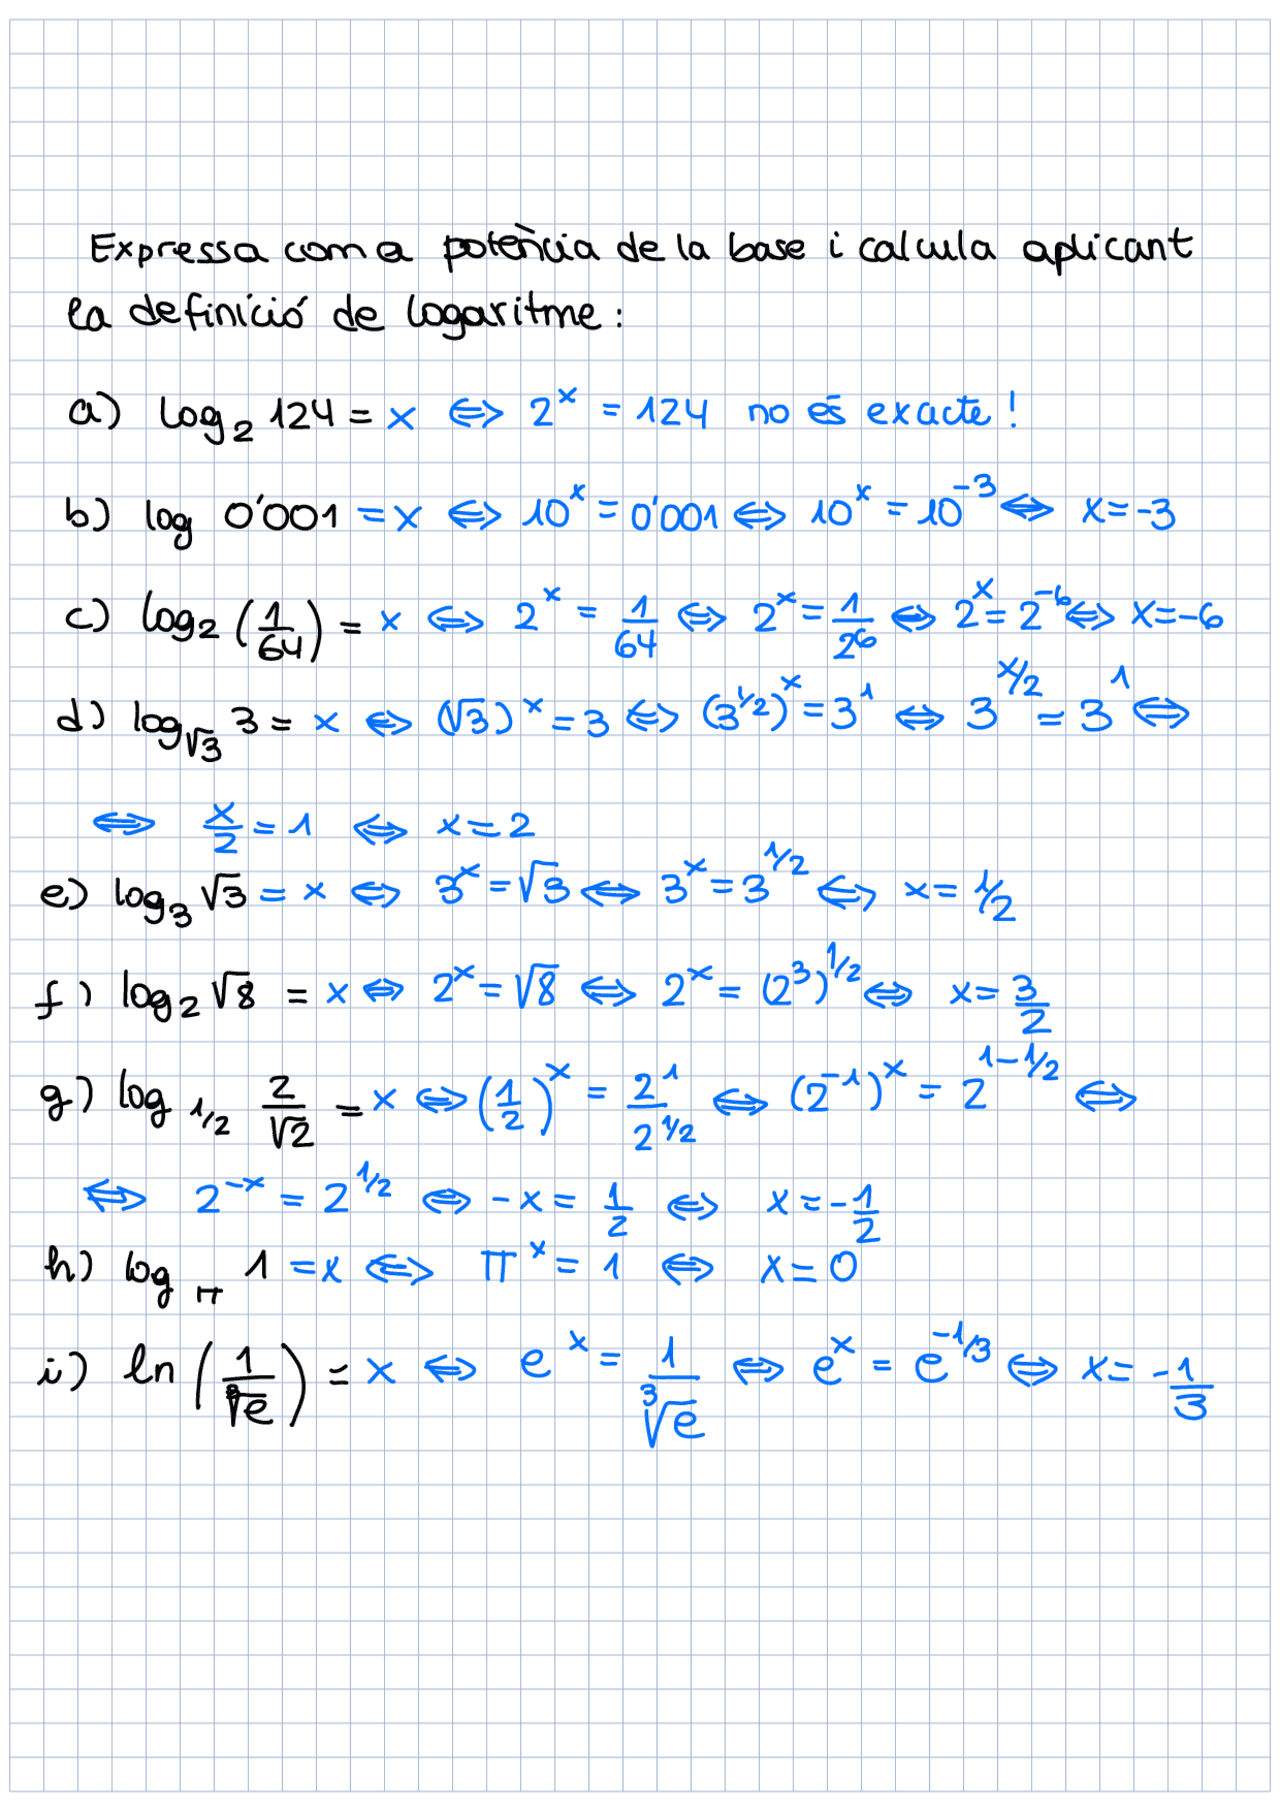 Expressa com a potència de la base i calcula aplicant
la definició de logaritme:
a) log₂ 124 = x ⟺ 2^x = 124 no és exacte!
b) log 0'001 = x ⟺ 10^x = 0'001 ⟺ 10^x = 10^-3 ⟺ x = -3
c) log₂ (1/64) = x ⟺ 2^x = 1/64 ⟺ 2^x = 1/2^6 ⟺ 2^x = 2^-6 ⟺ x = -6
d) log_√3 3 = x ⟺ (√3)^x = 3 ⟺ (3^1/2)^x = 3^1 ⟺ 3^x/2 = 3^1 ⟺
⟺ x/2 = 1 ⟺ x = 2
e) log₃ √3 = x ⟺ 3^x = √3 ⟺ 3^x = 3^1/2 ⟺ x = 1/2
f) log₂ √8 = x ⟺ 2^x = √8 ⟺ 2^x = (2^3)^1/2 ⟺ x = 3/2
g) log_1/2 2/√2 = x ⟺ (1/2)^x = 2^1/2^1/2 ⟺ (2^-1)^x = 2^1-1/2 ⟺
⟺ 2^-x = 2^1/2 ⟺ -x = 1/2 ⟺ x = -1/2
h) log_π 1 = x ⟺ π^x = 1 ⟺ x = 0
i) ln (1/∛e) = x ⟺ e^x = 1/∛e ⟺ e^x = e^-1/3 ⟺ x = -1/3